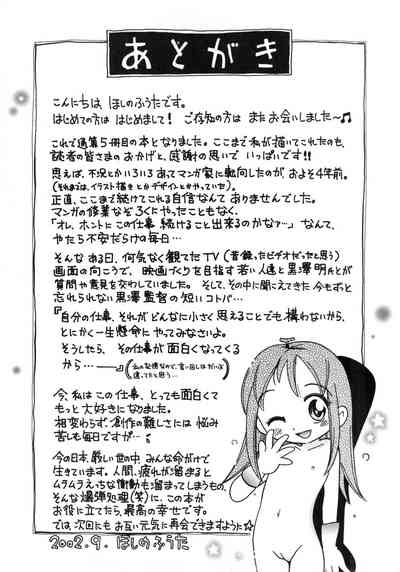 あとがき
こんにちは ほしのふうたです。
はじめての方は はじめまして! ご存知の方は またお会いしました〜♫
これで通算5冊目の本となりました。ここまで私が描いてこれたのも、
読者の皆さまのおかげと、感謝の思いで いっぱいです!!
思えば、不況とかいろいろあってマンガ家に転向したのが およそ4年前。
(それまでは、イラスト描きとかデザインとかやっていた)。
正直、ここまで続けてこれる自信なんて ありませんでした。
マンガの修業などろくにやったこともなく、
「オレ、ホントにこの仕事 続けること出来るのかなァ…」なんて、
やたら不安だらけの毎日…
そんなある日、何気なく観てたTV(昔録ったビデオだったと思う)
画面の向こうで、映画づくりを目指す若い人達と黒澤明氏とが
質問や意見を交わしていました。そして、その中に聞こえてきた今もずっと
忘れられない黒澤監督の短いコトバ…
『自分の仕事、それがどんなに小さく思えることでも構わないから、
とにかく一生懸命に やってみなさいよ。
そうしたら、その仕事が面白くなってくる
から……』
(私の記憶なので、言い回しはだいぶ
違ってたと思う…)
今、私はこの仕事、とっても面白くて
もっと大好きになりました。
相変わらず、創作の難しさには 悩み
苦しむ毎日ですが…
今の日本、厳しい世の中 みんな命がけで
生きています。人間、疲れが溜まると
ムラムラえっちな衝動も溜まってしまうもの。
そんな爆弾処理(笑)に、この本が
お役に立てたら、最高の幸せです。
では、次回にも お互い元気に再会できますように☆
2002.9. ほしのふうた